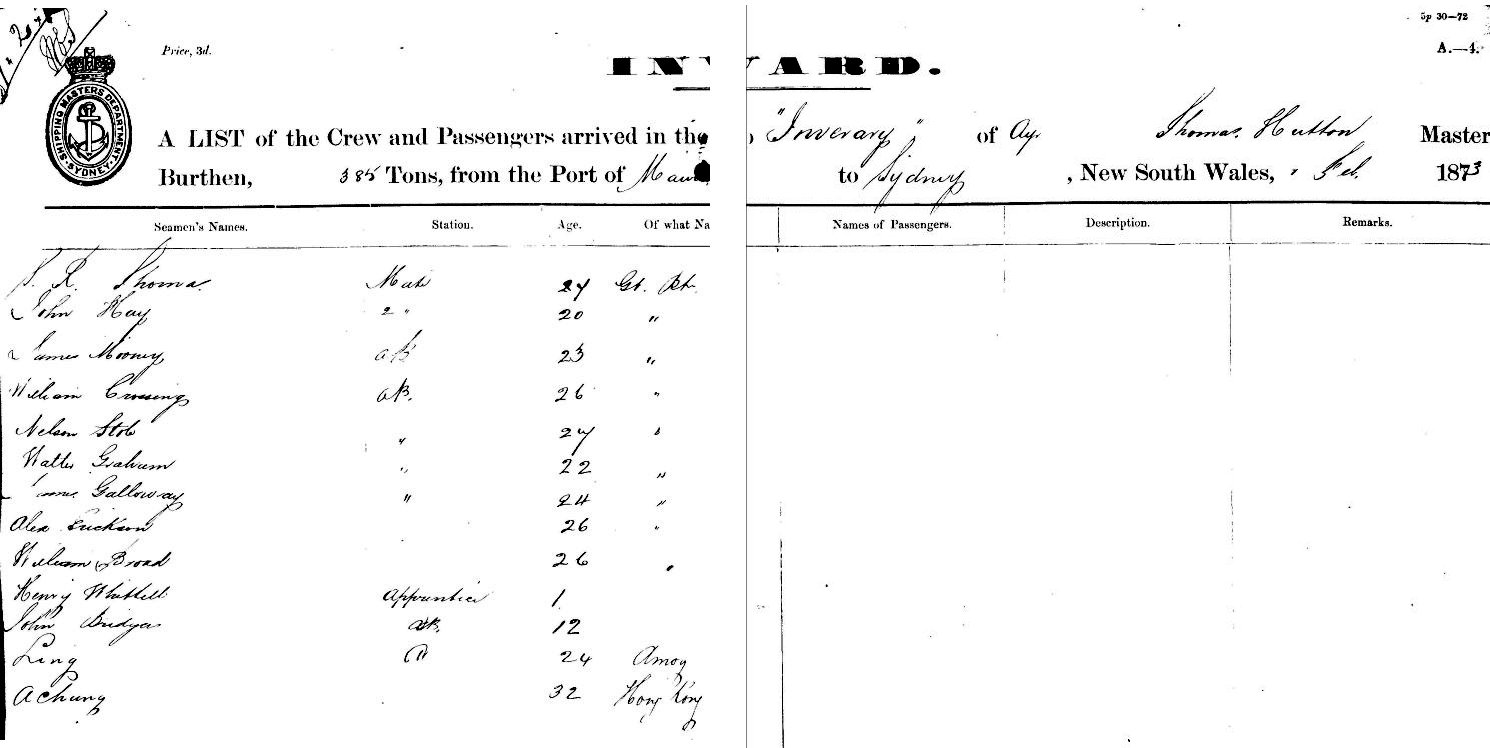 5p 30—72
Price, 3d.
A.—4.
INWARD.
SHIPPING MASTERS DEPARTMENT SYDNEY
A LIST of the Crew and Passengers arrived in the "Inverary" of Ayr Thomas Hutton Master
Burthen, 385 Tons, from the Port of Mau to Sydney, New South Wales, Feb. 1873
Seamen's Names. Station. Age. Of what Na Names of Passengers. Description. Remarks.
R. Thomas Mate 27 Gt. Bt.
John Hay 2 " 20 "
James Mooney AB 23 "
William Crossing AB. 26 "
Nelson " 27 "
Walter Graham " 22 "
Galloway " 24 "
Alex Erickson 26 "
William Broad 26 "
Henry Apprentice 1
John Bridges AB. 12
Ling 24 Amoy
Achung 32 Hong Kong